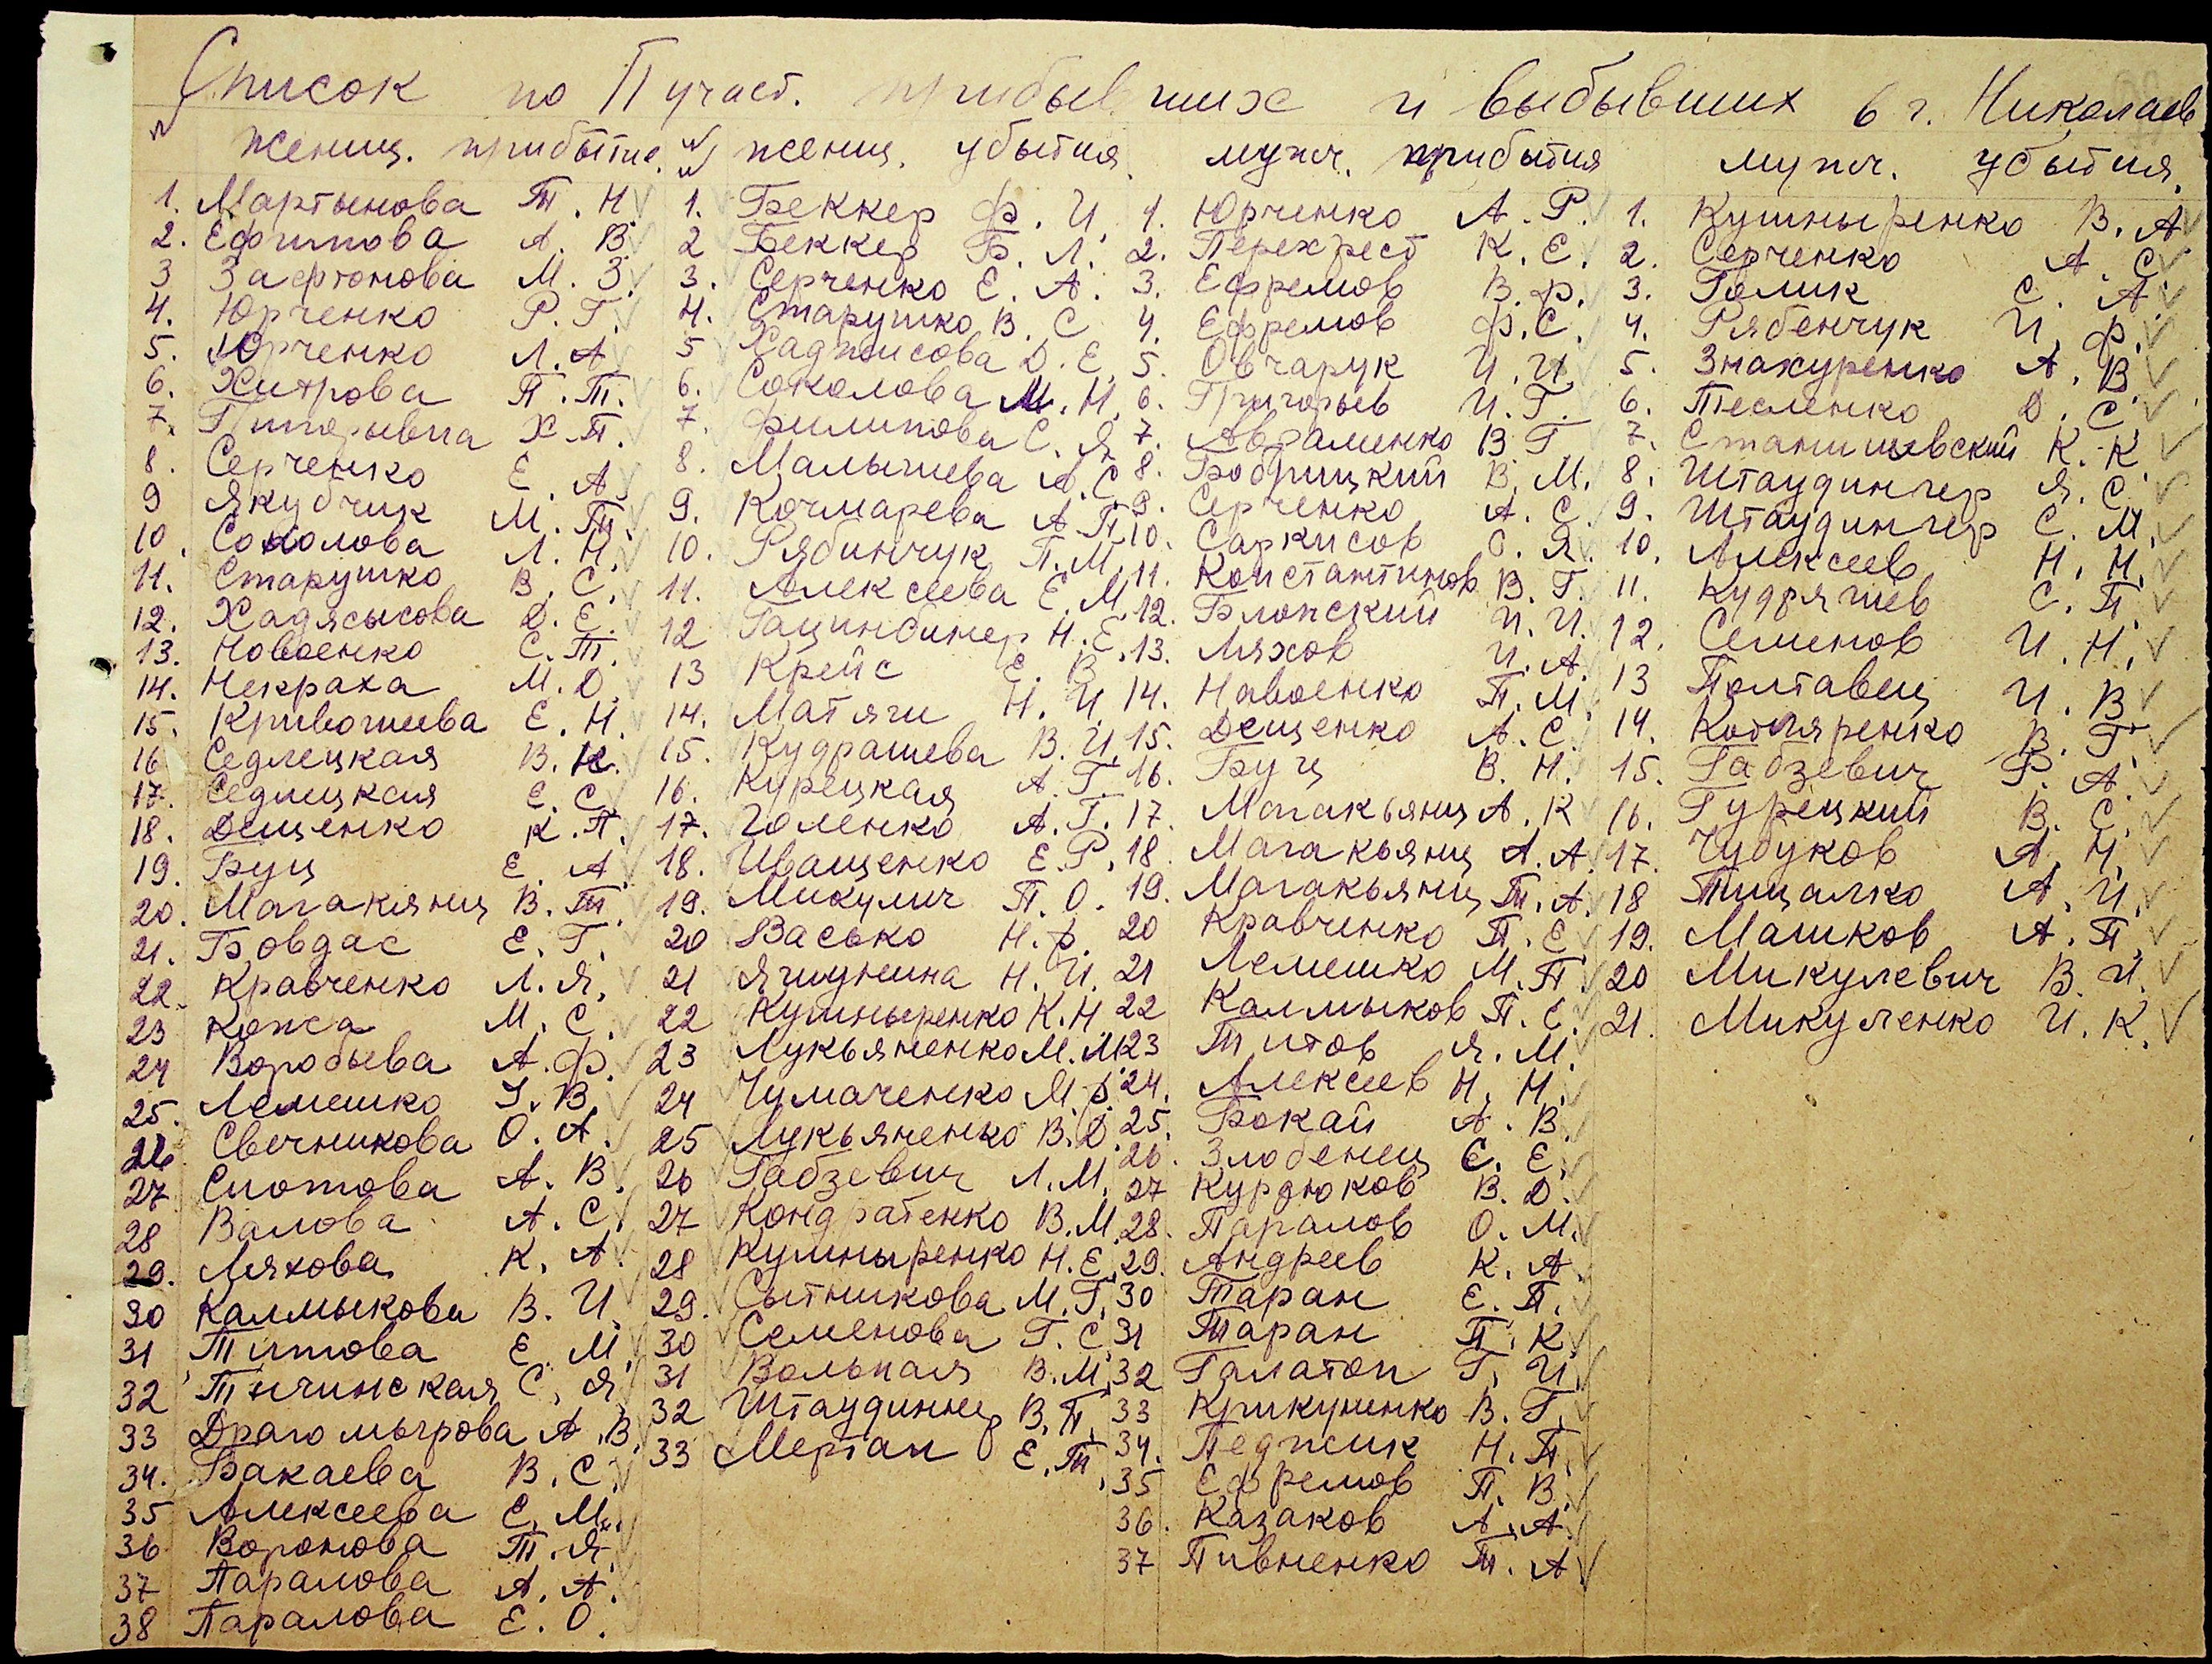 Список по П участ. прибывших и выбывших в г. Николаев
женщ. прибытие
1. Мартынова Т. Н
2. Ефимова А. В.
3 Зафтонова М. З.
4. Юрченко Р. Г.
5. Юрченко Л. А
6. Хитрова П. Т.
7. Х. П.
8. Серченко Е. А
9 Якубчик М. Т.
10. Соколова Л. Н.
11. Старушко В. С.
12. Хаджысова Д. Е.
13. Новоенко С. Т.
14. Некраха М. Д.
15. Кривошеева Е. Н.
16 Седлецкая В. К.
17. Седлецкая Е. С
18. Дещенко К. П.
19. Буц Е. А
20. Магакянц В. Т.
21. Бовдас Е. Г.
22. Кравченко Л. Я.
23 Копса М. С.
24 Воробьева А. Ф.
25. Лемешко З. В.
26 Свечникова О. А.
27 А. В.
28 Валова А. С.
29. Ляхова К. А
30 Калмыкова В. И.
31 Титова Е. М.
32 Тичинская С. Я
33 Драгомырова А. В.
34. Бакаева В. С.
35 Алексеева Е. М.
36 Воронова Т. Я.
37 Паралова А. А.
38 Паралова Е. О.
женщ. убытия
1. Беккер Ф. И.
2 Беккер Б. Л.
3. Серченко Е. А.
4. Старушко В. С
5 Хаджисова Д. Е.
6. Соколова М. Н.
7. Филипова С. Я
8. Малышева А. С.
9. Кочмарева А. П.
10. Рябинчук П. М.
11. Алексеева Е. М.
12 Н. Е.
13 Крейс Е. В
14. Матяги Н. И.
15. Кудрашева В. И.
16. Курецкая А. Г.
17. Голенко А. Г.
18. Иващенко Е. Р.
19. Микулич П. О.
20 Васько Н. Ф.
21 Ягмунина Н. И.
22 Кушныренко К. Н
23 Лукьяненко М. М.
24 Чумаченко М. Ф.
25 Лукьяненко В. Д.
26 Габзевич Л. М.
27 Кондратенко В. М.
28 Кушныренко Н. Е.
29. Сытникова М. Г.
30 Семенова Г. С.
31 Вольная В. М.
32 Штаудингер В. П.
33 Мерган Е. Т.
мужч. прибытия
1. Юрченко А. Р.
2. Перехрест К. Е.
3. Ефремов В. Ф.
4. Ефремов Ф. С.
5. Овчарук И. И.
6. Григорьев И. Г.
7. Авраменко В. Г
8. Бобрицкий В. М.
9. Серченко А. С.
10. Саркисов О. Я
11. Константинов В. Г.
12. Блонский И. И.
13. Ляхов И. А.
14. Новоенко П. М.
15. Дещенко А. С.
16. Буц В. Н.
17. Магакьянц А. К
18 Магакьянц А. А
19. Магакьянц Т. А.
20 Кравченко П. Е
21 Лемешко М. П.
22 Калмыков П. С.
23 Титов Я. М.
24. Алексеев Н. Н.
25. Бокай А. В.
26. Злобенец Е. Е.
27 Курдюков В. Д.
28. Паралов О. М.
29. Андреев К. А.
30 Таран Е. П.
31 Таран П. К
32 Галатоп Г. И.
33 Крикуненко В. Г.
34. Педжик Н. П.
35 Ефремов П. В.
36. Казаков А. А.
37 Пивненко Т. А
мужч. убытия.
1. Кушныренко В. А
2. Серченко А. С
3. Голик С. А.
4. Рябенчук И. Ф.
5. Знахуренко А. В.
6. Тесленко Д. С.
7. Станишевский К. К
8. Штаудингер Я. С.
9. Штаудингер С. М.
10. Алексеев Н. Н.
11. Кудряшев С. П.
12. Семенов И. Н.
13 Полтавец И. В
14. Котляренко В. Г.
15. Габзевич Р. А.
16. Гурецкий В. С.
17. Чубуков А. Н.
18 Тицалко А. И.
19. Машков А. П.
20 Микулевич В. И.
21. Микуленко И. К.